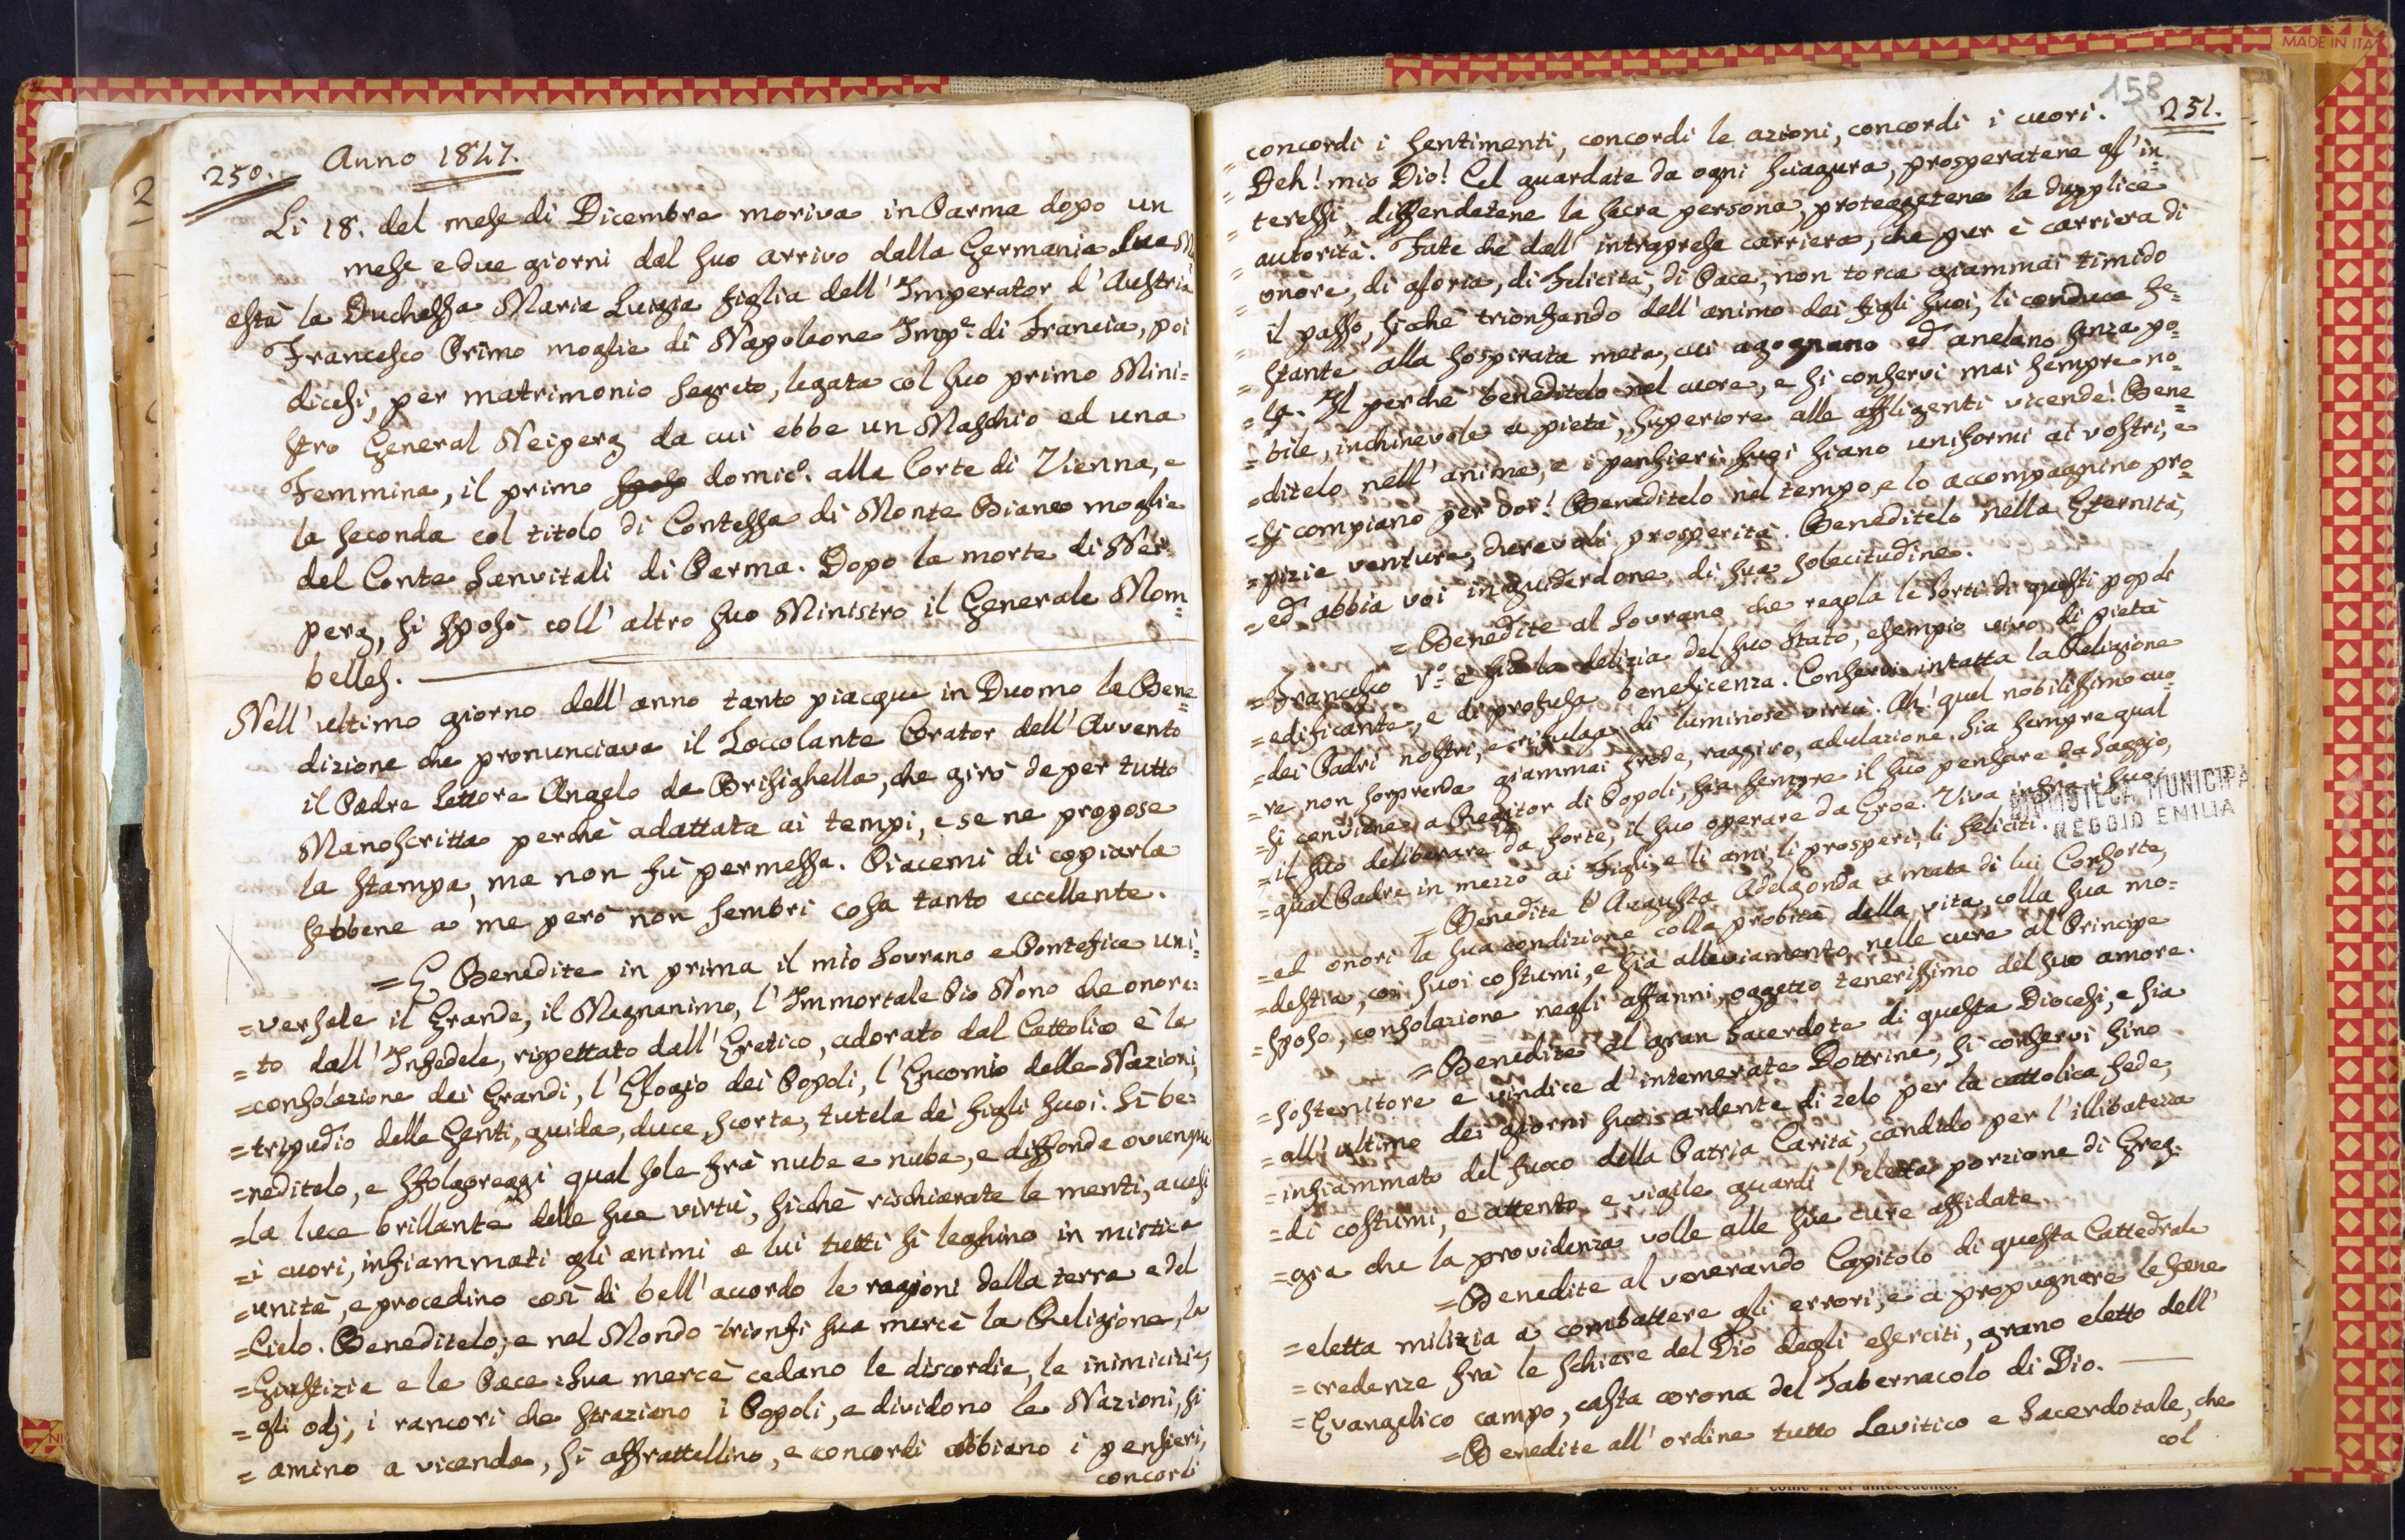 250. Anno 1847.
Li 18. del mese di Dicembre moriva in Parma dopo un
mese e due giorni dal suo arrivo dalla Germania Sua Ma
està la Duchessa Maria Luigia figlia dell'Imperator d'Austria
Francesco Primo moglie di Napoleone Imp.e di Francia, poi
dicesi, per matrimonio segreto, legata col suo primo Mini=
stro General Neiperg da cui ebbe un Maschio ed una
Femmina, il primo sposo domic.o alla Corte di Vienna, e
la seconda col titolo di Contessa di Monte Bianco moglie
del Conte Sanvitali di Parma. Dopo la morte di Nei
perg, si sposò coll'altro suo Ministro il Generale Mom=
belles.
Nell'ultimo giorno dell'anno tanto piacque in Duomo la Bene=
dizione che pronunciava il Zoccolante Orator dell'Avvento
il Padre Lettore Angelo da Brisighella, che girò da per tutto
Manoscritta perchè adattata ai tempi, e se ne propose
la stampa, ma non fù permessa. Piacemi di copiarla
sebbene a me però non sembri cosa tanto eccellente.
= E, Benedite in prima il mio Sovrano e Pontefice uni=
= versale il Grande, il Magnanimo, l'Immortale Pio Nono che onora=
= to dall'Infedele, rispettato dall'Eretico, adorato dal Cattolico è la
= consolazione dei Grandi, l'Elogio dei Popoli, l'Encomio delle Nazioni,
= tripudio delle Genti, guida, duce, scorta, tutela de' figli suoi. Sì be=
= neditelo, e sfolgoreggi qual sole frà nube e nube, e diffonde ovunque
= la luce brillante delle sue virtù, sicchè rischiarate le menti, accesi
= i cuori, infiammati gli animi a lui tutti si leghino in mistica
= unità, e procedino così di bell'accordo le ragioni della terra e del
= Cielo. Beneditelo; e nel Mondo trionfi sua mercè la Religione, la
= Giustizia e la Pace: sua mercè cedano le discordie, le inimicizie,
= gli odj, i rancori che straziano i Popoli, e dividono le Nazioni, si
= amino a vicenda, si affrattellino, e concordi abbiano i pensieri,
concordi
158
251.
= concordi i sentimenti, concordi le azioni, concordi i cuori.
= Deh! mio Dio! Cel guardate da ogni sciagura, prosperatene gl'in=
= teressi, diffendetene la sacra persona, proteggetene la dupplice
= autorità. Fate che dall'intrapresa carriera, che pur è carriera di
= onore, di gloria, di Felicità, di Pace, non torca giammai timido
= il passo, sicchè trionfando dell'animo dei figli suoi, li conduca fe=
= stante alla sospirata meta, cui agognano ed anelano senza po=
= sa. Il perchè beneditelo nel cuore, e si conservi mai sempre no=
= bile, inchinevole a pietà, superiore alle affligenti vicende. Bene=
= ditelo nell'anima, e i pensieri suoi siano uniformi ai vostri, e
= si compiano per voi! Beneditelo nel tempo, e lo accompagnino pro=
= pizie venture, durevoli prosperità. Beneditelo nella Eternità,
= ed abbia voi in guiderdone di sua solecitudine.
= Benedite al Sovrano che regola le sorti di questi popoli
= Francesco V.o e sia la delizia del suo Stato, esempio vivo di pietà
= edificante, e di profusa beneficenza. Conservi intatta la Religione
= dei Padri nostri, e rifulga di luminose virtù. Ah! quel nobilissimo cuo=
= re non sorprenda giammai frode, raggiro, adulazione. Sia sempre qual
= si conviene a Regitor di Popoli, sia sempre il suo pensare da Saggio,
= il suo deliberare da forte, il suo operare da Eroe. Viva infra i suoi
= qual Padre in mezzo ai Figli, e li ami, li prosperi, li feliciti.
BIBLIOTECA MUNICIPA
REGGIO EMILIA
= Benedite l'Augusta Adelgonda amata di lui Consorte,
= ed onori la sua condizione colla probità della vita, colla sua mo=
= destia, coi suoi costumi, e sia alleviamento nelle cure al Principe
= sposo, consolazione negli affanni, oggetto tenerissimo del suo amore.
= Benedite al gran Sacerdote di questa Diocesi, e sia
= sostenitore e vindice d'intemerate Dottrine, si conservi sino
= all'ultimo dei giorni suoi ardente di zelo per la cattolica fede,
= infiammato del fuoco della Patria Carità, candido per l'illibatezza
= di costumi, e attento e vigile guardi l'eletta porzione di Greg=
= gia che la providenza volle alle sue cure affidate.
= Benedite al venerando Capitolo di questa Cattedrale
= eletta milizia a combattere gli errori, e a propugnare le sane
= credenze frà le schiere del Dio degli eserciti, grano eletto dell'
= Evangelico campo, casta corona del Tabernacolo di Dio.
= Benedite all'ordine tutto Levitico e Sacerdotale, che
col
MADE IN ITA